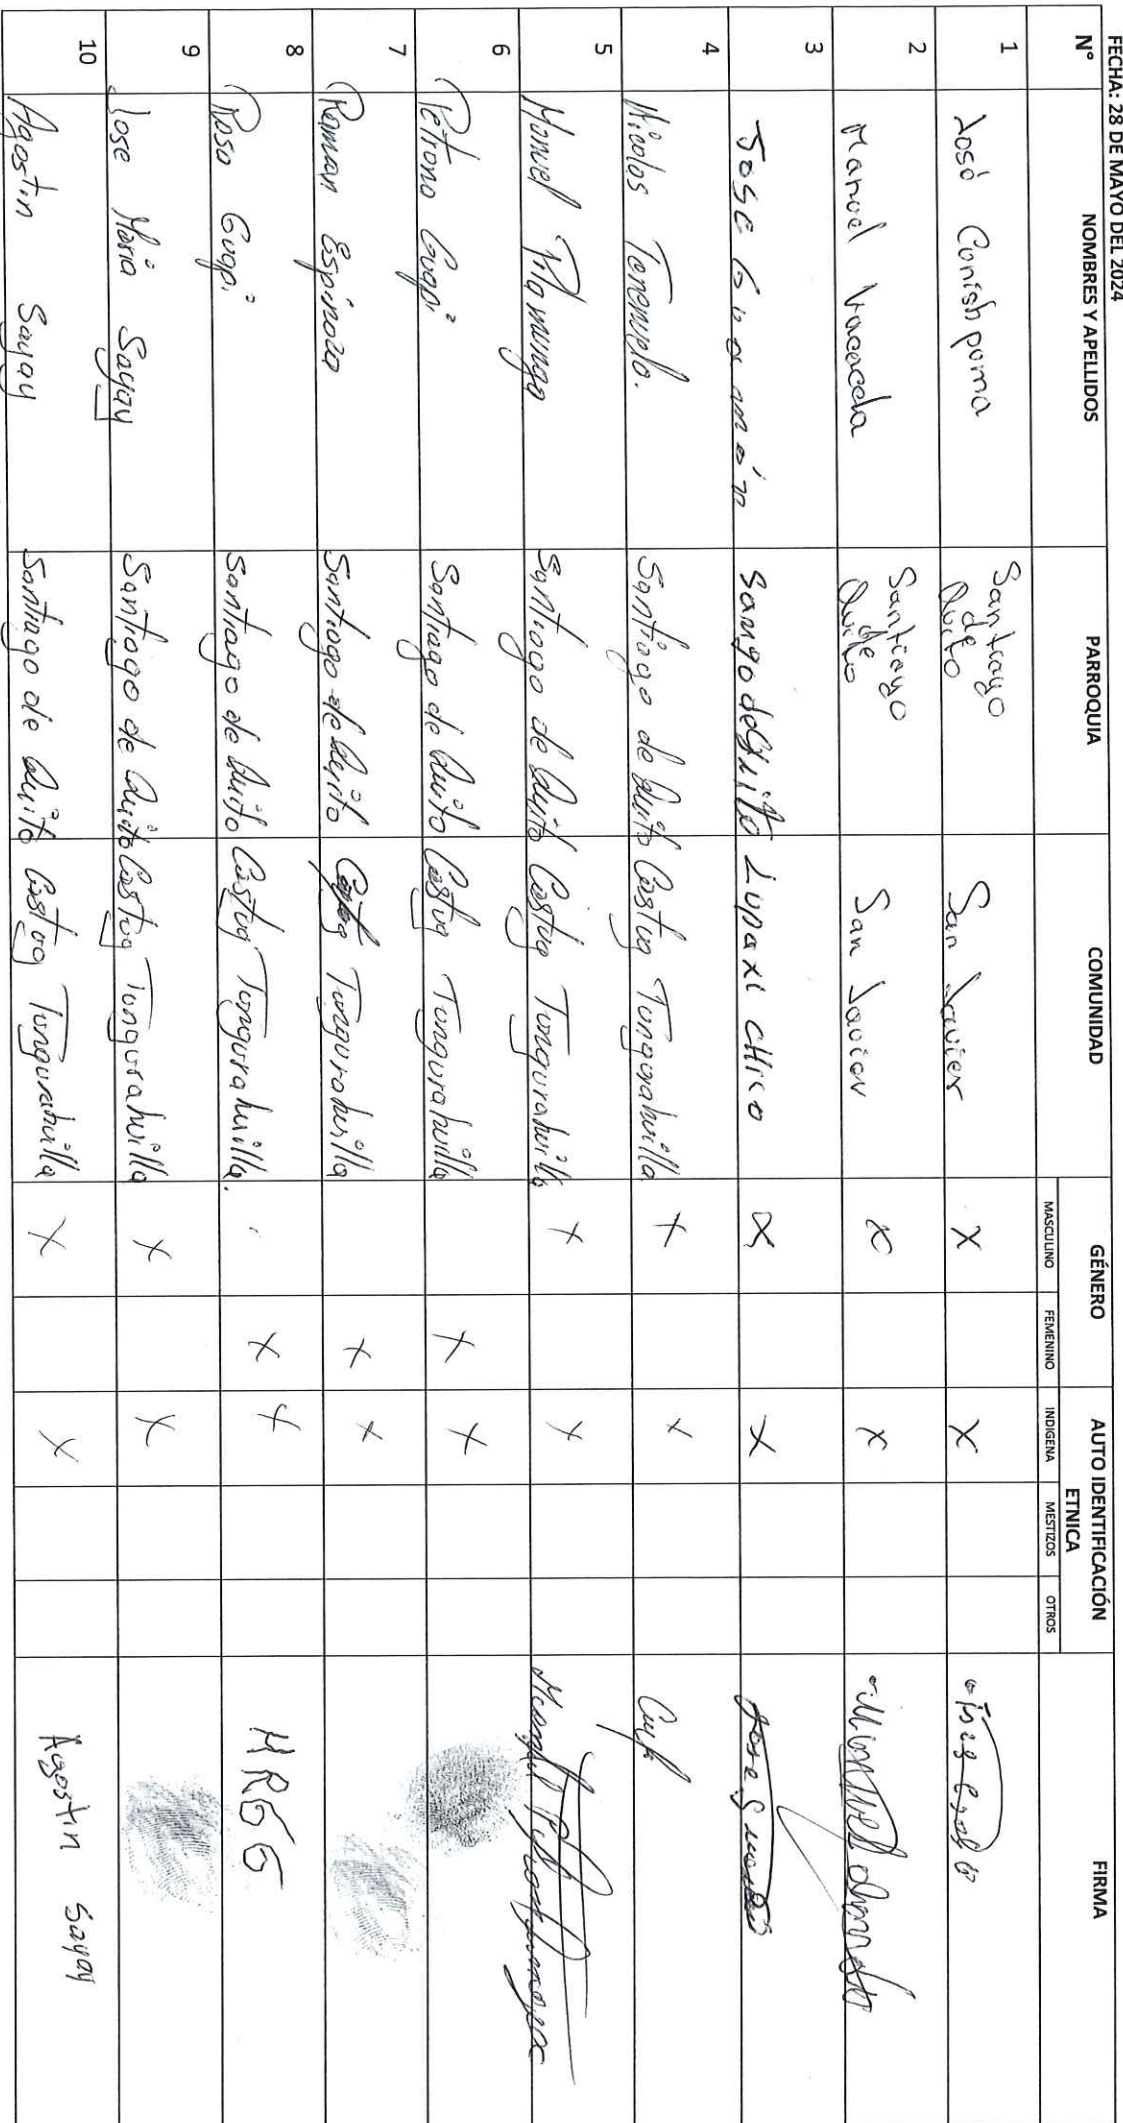 FECHA: 28 DE MAYO DEL 2024
N° NOMBRES Y APELLIDOS PARROQUIA COMUNIDAD GÉNERO AUTO IDENTIFICACIÓN ETNICA FIRMA
MASCULINO FEMENINO INDIGENA MESTIZOS OTROS
1 José Conishpoma Santiago de Quito San Javier X X
2 Manuel Santiago de Quito San Javier X X
3 Jose Guamán Sango de Quito Lupaxi cHico X X Jose
4 Nicolas Tenemplo. Santiago de Quito Castug Tungurahuilla X X
5 Manuel Pilamunga Santiago de Quito Castug Tungurahuilla X X
6 Petrona Guapi Santiago de Quito Castug Tungurahuilla X X
7 Ramon Espinoza Santiago de Quito Tungurahuilla X X
8 Rosa Guapi Santiago de Quito Castug Tungurahuilla. X X MRGG
9 Jose Maria Sayay Santiago de Quito Castug Tungurahuilla X X
10 Agostin Sayay Santiago de Quito Castug Tungurahuilla X X Agostin Sayay